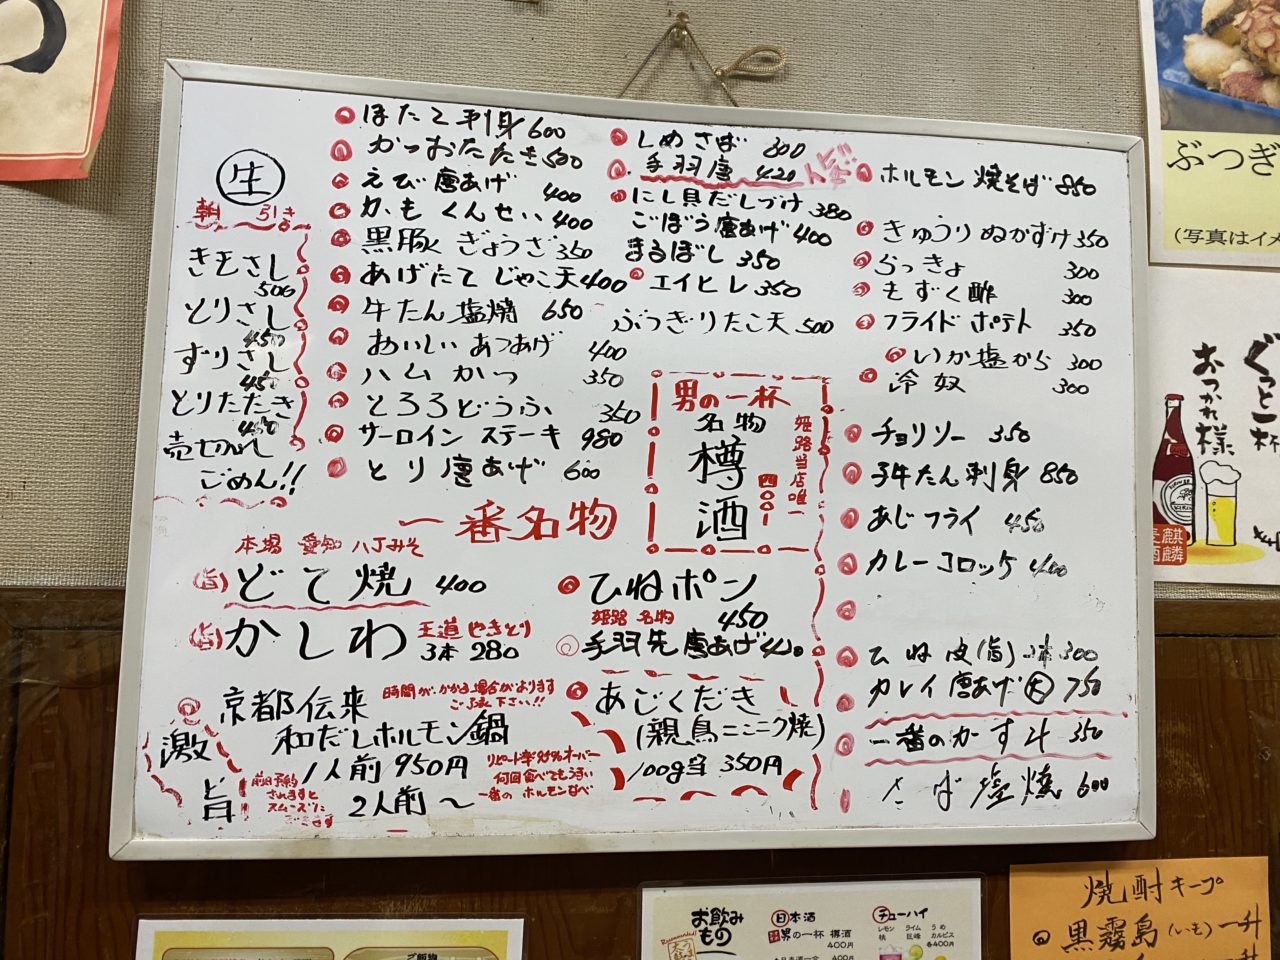 生
朝引き
きもさし 500
とりさし 450
ずりさし 450
とりたたき 450
売切れ
ごめん!!
ほたて刺身 600
かつおたたき 500
えび唐あげ 400
かもくんせい 400
黒豚ぎょうざ 350
あげたてじゃこ天 400
牛たん塩焼 650
おいしいあつあげ 400
ハムかつ 350
とろろどうふ 350
サーロインステーキ 980
とり唐あげ 600
しめさば 300
手羽唐 420
にし貝だしづけ 380
ごぼう唐あげ 400
まるぼし 350
エイヒレ 350
ぶつぎりたこ天 500
男の一杯
名物
樽酒
四〇〇
姫路当店唯一
ホルモン焼そば 850
きゅうりぬかずけ 350
らっきょ 300
もずく酢 300
フライドポテト 350
いか塩から 300
冷奴 300
チョリソー 350
子牛たん刺身 850
あじフライ 450
カレーコロッケ 400
ひね皮(旨) 3本 300
カレイ唐あげ 大 750
一番のかす汁 350
さば塩焼 600
一番名物
本場 愛知 八丁みそ
(旨) どて焼 400
(旨) かしわ 王道やきとり
3本 280
ひねポン
姫路名物 450
手羽先唐あげ 420
激旨
京都伝来
時間がかかる場合があります
ご了承下さい!!
和だしホルモン鍋
1人前 950円
2人前〜
前日予約
されますと
スムーズに
リピート率95%オーバー
何回食べてもうまい
一番のホルモンなべ
あじくだき
(親鳥ニンニク焼)
100g当 350円
ぶつぎ
(写真はイメ
ぐっと一杯
おつかれ様
麒麟
お飲みもの
日本酒
男の一杯 樽酒
400円
チューハイ
レモン ライム うめ
桃 巨峰 カルピス
各400円
ご飯物
焼酎キープ
黒霧島(いも) 一升